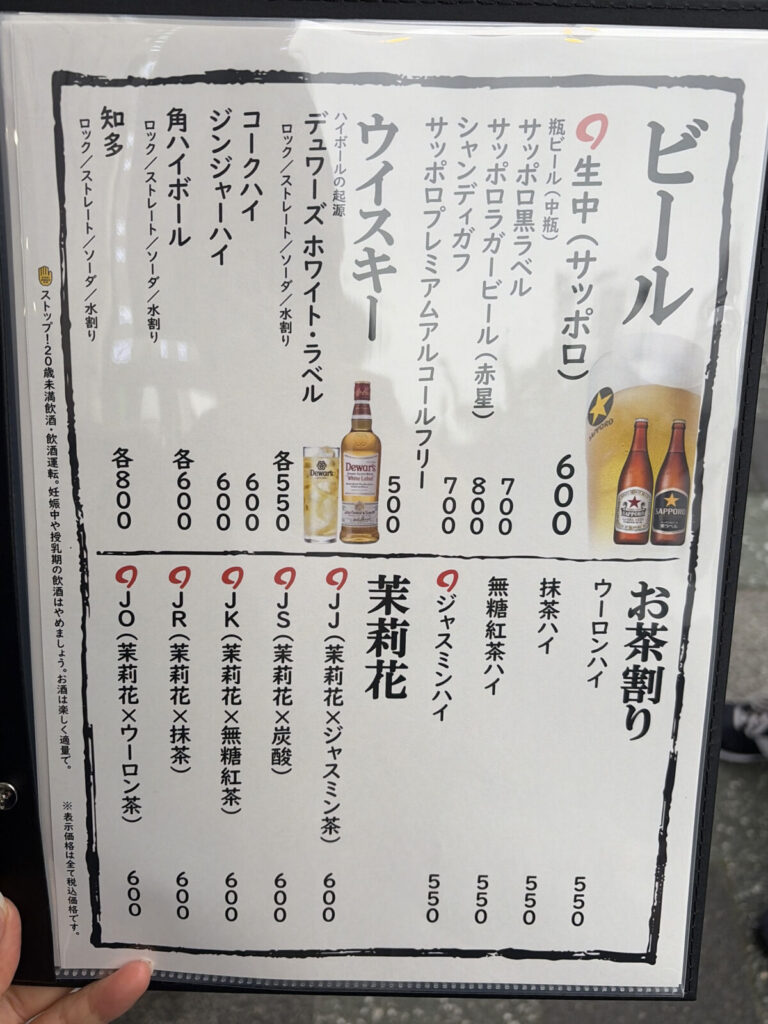 ビール
生中(サッポロ) 600
瓶ビール(中瓶)
サッポロ黒ラベル 700
サッポロラガービール(赤星) 800
シャンディガフ 700
サッポロプレミアムアルコールフリー 500
ウイスキー
ハイボールの起源
デュワーズ ホワイト・ラベル 各550
ロック/ストレート/ソーダ/水割り
コークハイ 600
ジンジャーハイ 600
角ハイボール 各600
ロック/ストレート/ソーダ/水割り
知多 各800
ロック/ストレート/ソーダ/水割り
SAPPORO
SAPPORO
SAPPORO
Dewar's
Dewar's
White Label
お茶割り
ウーロンハイ 550
抹茶ハイ 550
無糖紅茶ハイ 550
ジャスミンハイ 550
茉莉花
JJ(茉莉花×ジャスミン茶) 600
JS(茉莉花×炭酸) 600
JK(茉莉花×無糖紅茶) 600
JR(茉莉花×抹茶) 600
JO(茉莉花×ウーロン茶) 600
ストップ!20歳未満飲酒・飲酒運転。妊娠中や授乳期の飲酒はやめましょう。お酒は楽しく適量で。
※表示価格は全て税込価格です。